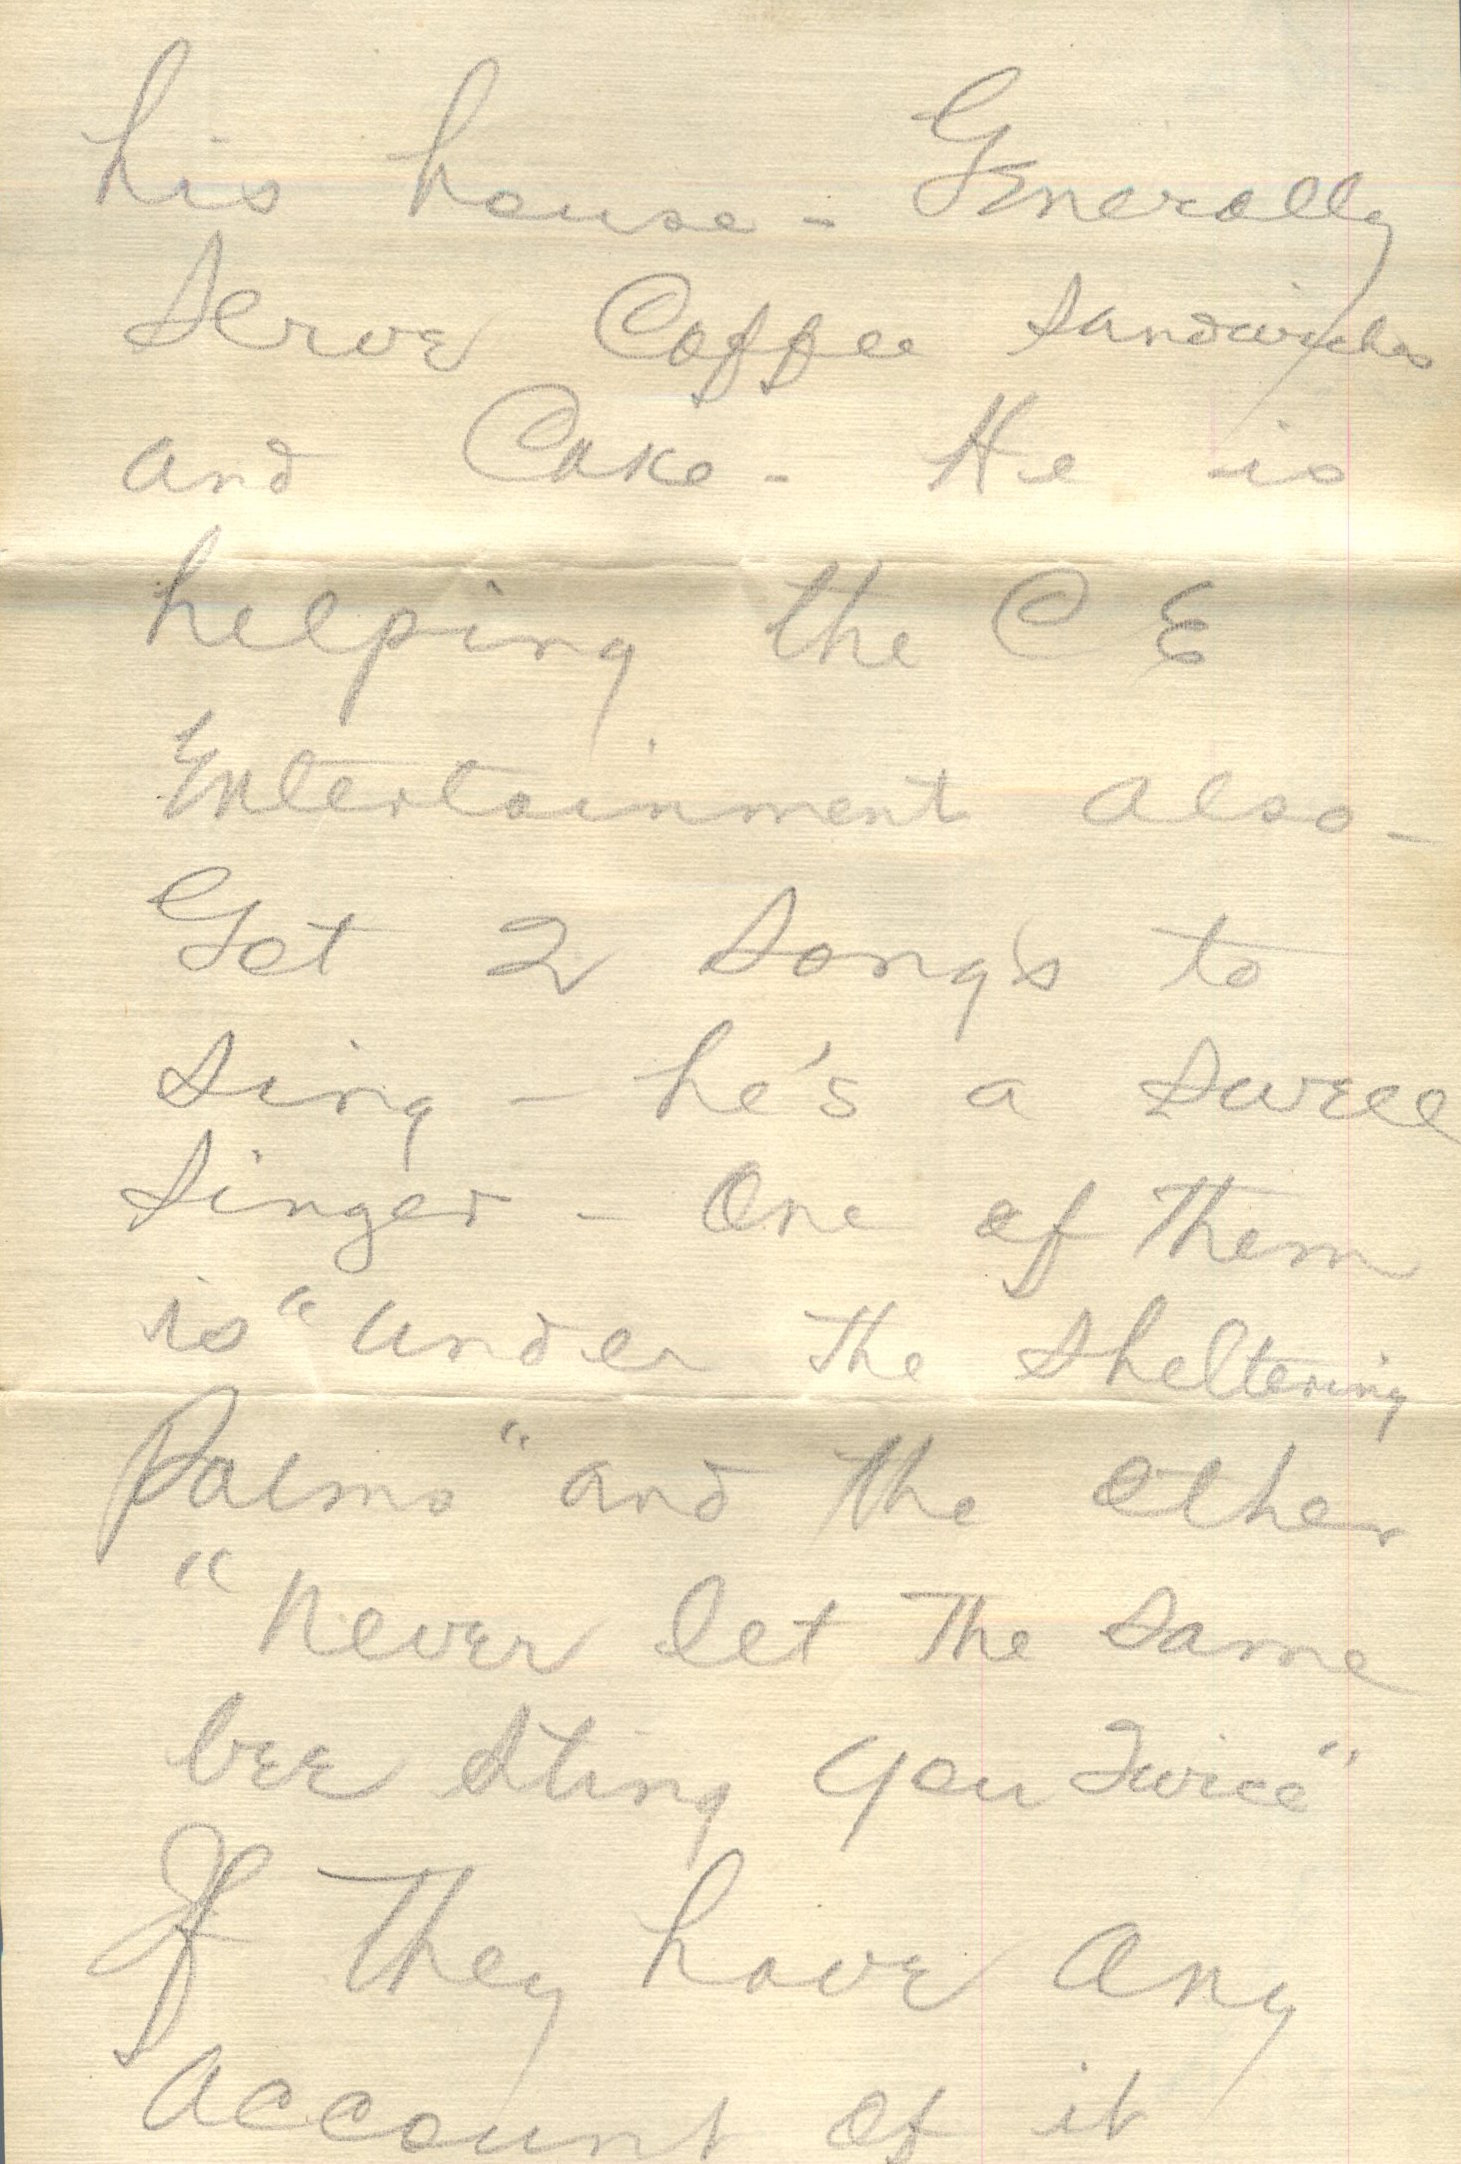 his house - Generally
Serve Coffee Sandwiches
and Cake - He is
helping the C E
Entertainment also -
Got 2 Song's to
Sing - he's a Swell
Singer - One of Them
is "under The Sheltering
Palms" and the other
"Never let The Same
bee Sting you Twice"
If They have any
account of it